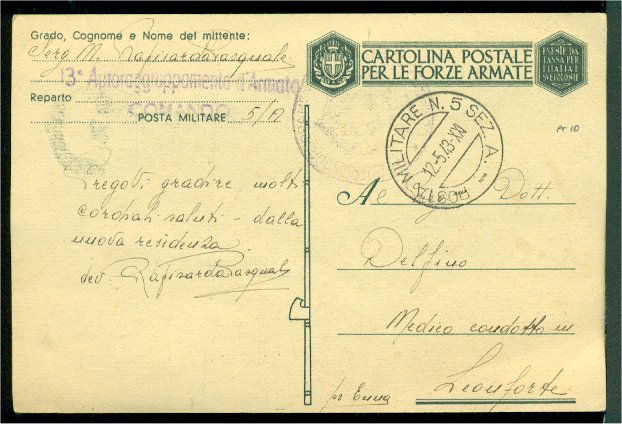 Grado, Cognome e Nome del mittente:
Serg. M. Rapisarda Pasquale
13° Autoraggruppamento d'Armata
COMANDO
Reparto
POSTA MILITARE 5/A
CARTOLINA POSTALE
PER LE FORZE ARMATE
ESENTE DA
TASSA PER
L'ITALIA E
SUE COLONIE
POSTA MILITARE N. 5 SEZ. A.
12-5-43-XXI
Pr 10
Pregoti gradire molti
cordiali saluti - dalla
nuova residenza.
dev. Rapisarda Pasquale
Al Dott.
Delfino
Medico condotto in
Leonforte
pr Enna